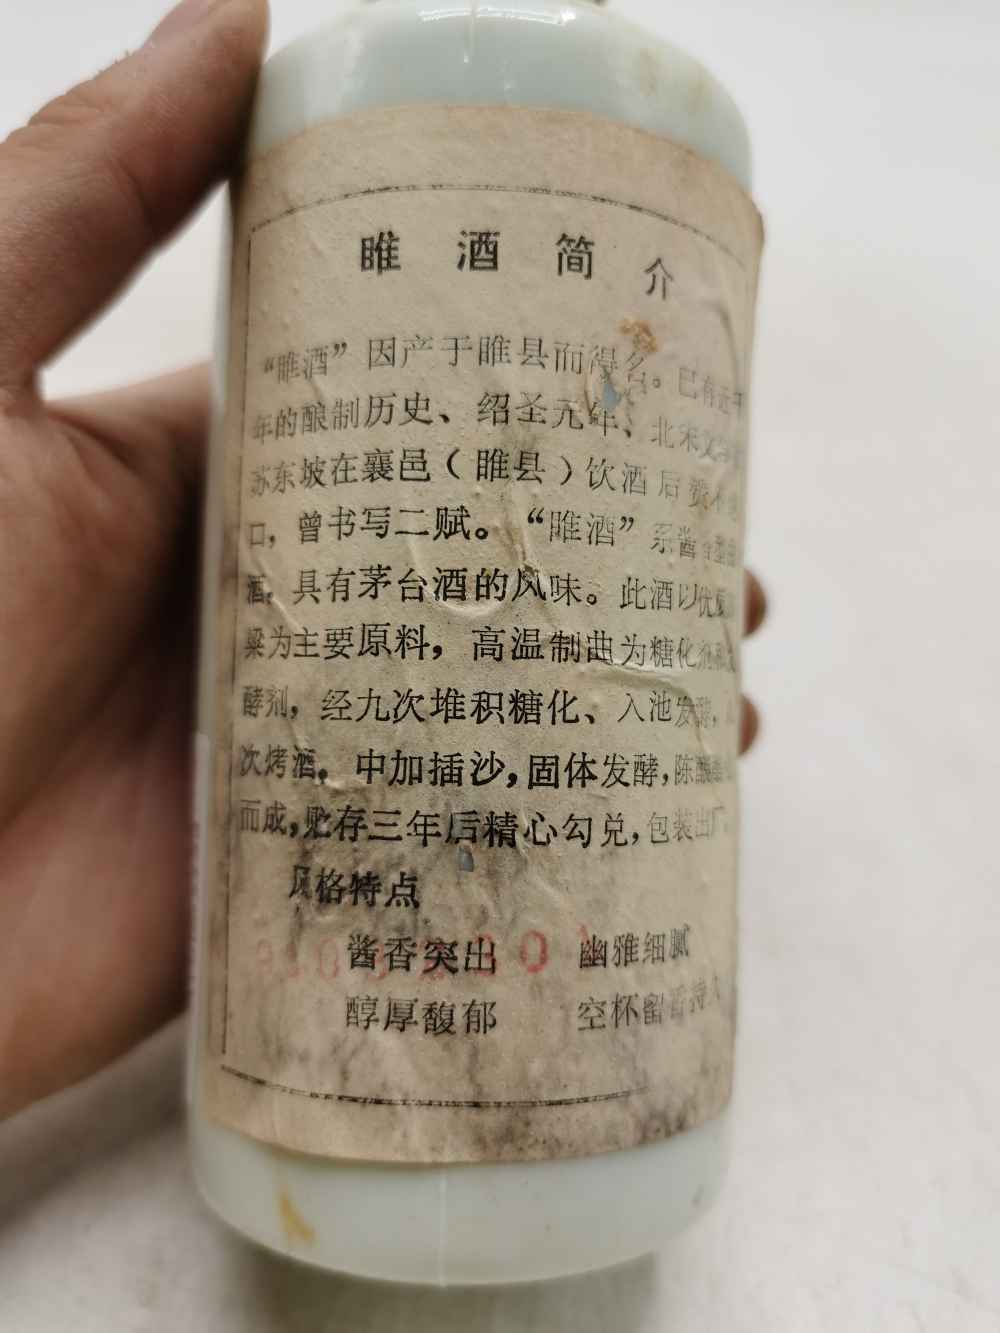 睢酒简介
“睢酒”因产于睢县而得名。已有近千
年的酿制历史、绍圣元年、北宋文
苏东坡在襄邑（睢县）饮酒后赞不
口，曾书写二赋。“睢酒”系酱香型
酒，具有茅台酒的风味。此酒以优
粱为主要原料，高温制曲为糖化剂
酵剂，经九次堆积糖化、入池发酵，
次烤酒，中加插沙，固体发酵，陈
而成，贮存三年后精心勾兑，包装出厂
风格特点
酱香突出 幽雅细腻
醇厚馥郁 空杯留香持久